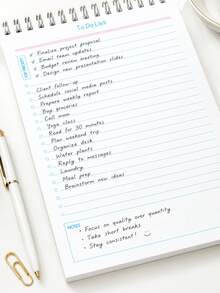 To Do Lists
TOP PRIORITY
Finalize project proposal
Email team updates
Budget review meeting
Design new presentation slides
Client follow-up
Schedule social media posts
Prepare weekly report
Buy groceries
Call mom
Yoga class
Read for 30 minutes
Plan weekend trip
Organize desk
Water plants
Reply to messages
Laundry
Meal prep
Brainstorm new ideas
NOTES
• Focus on quality over quantity
• Take short breaks
• Stay consistent!